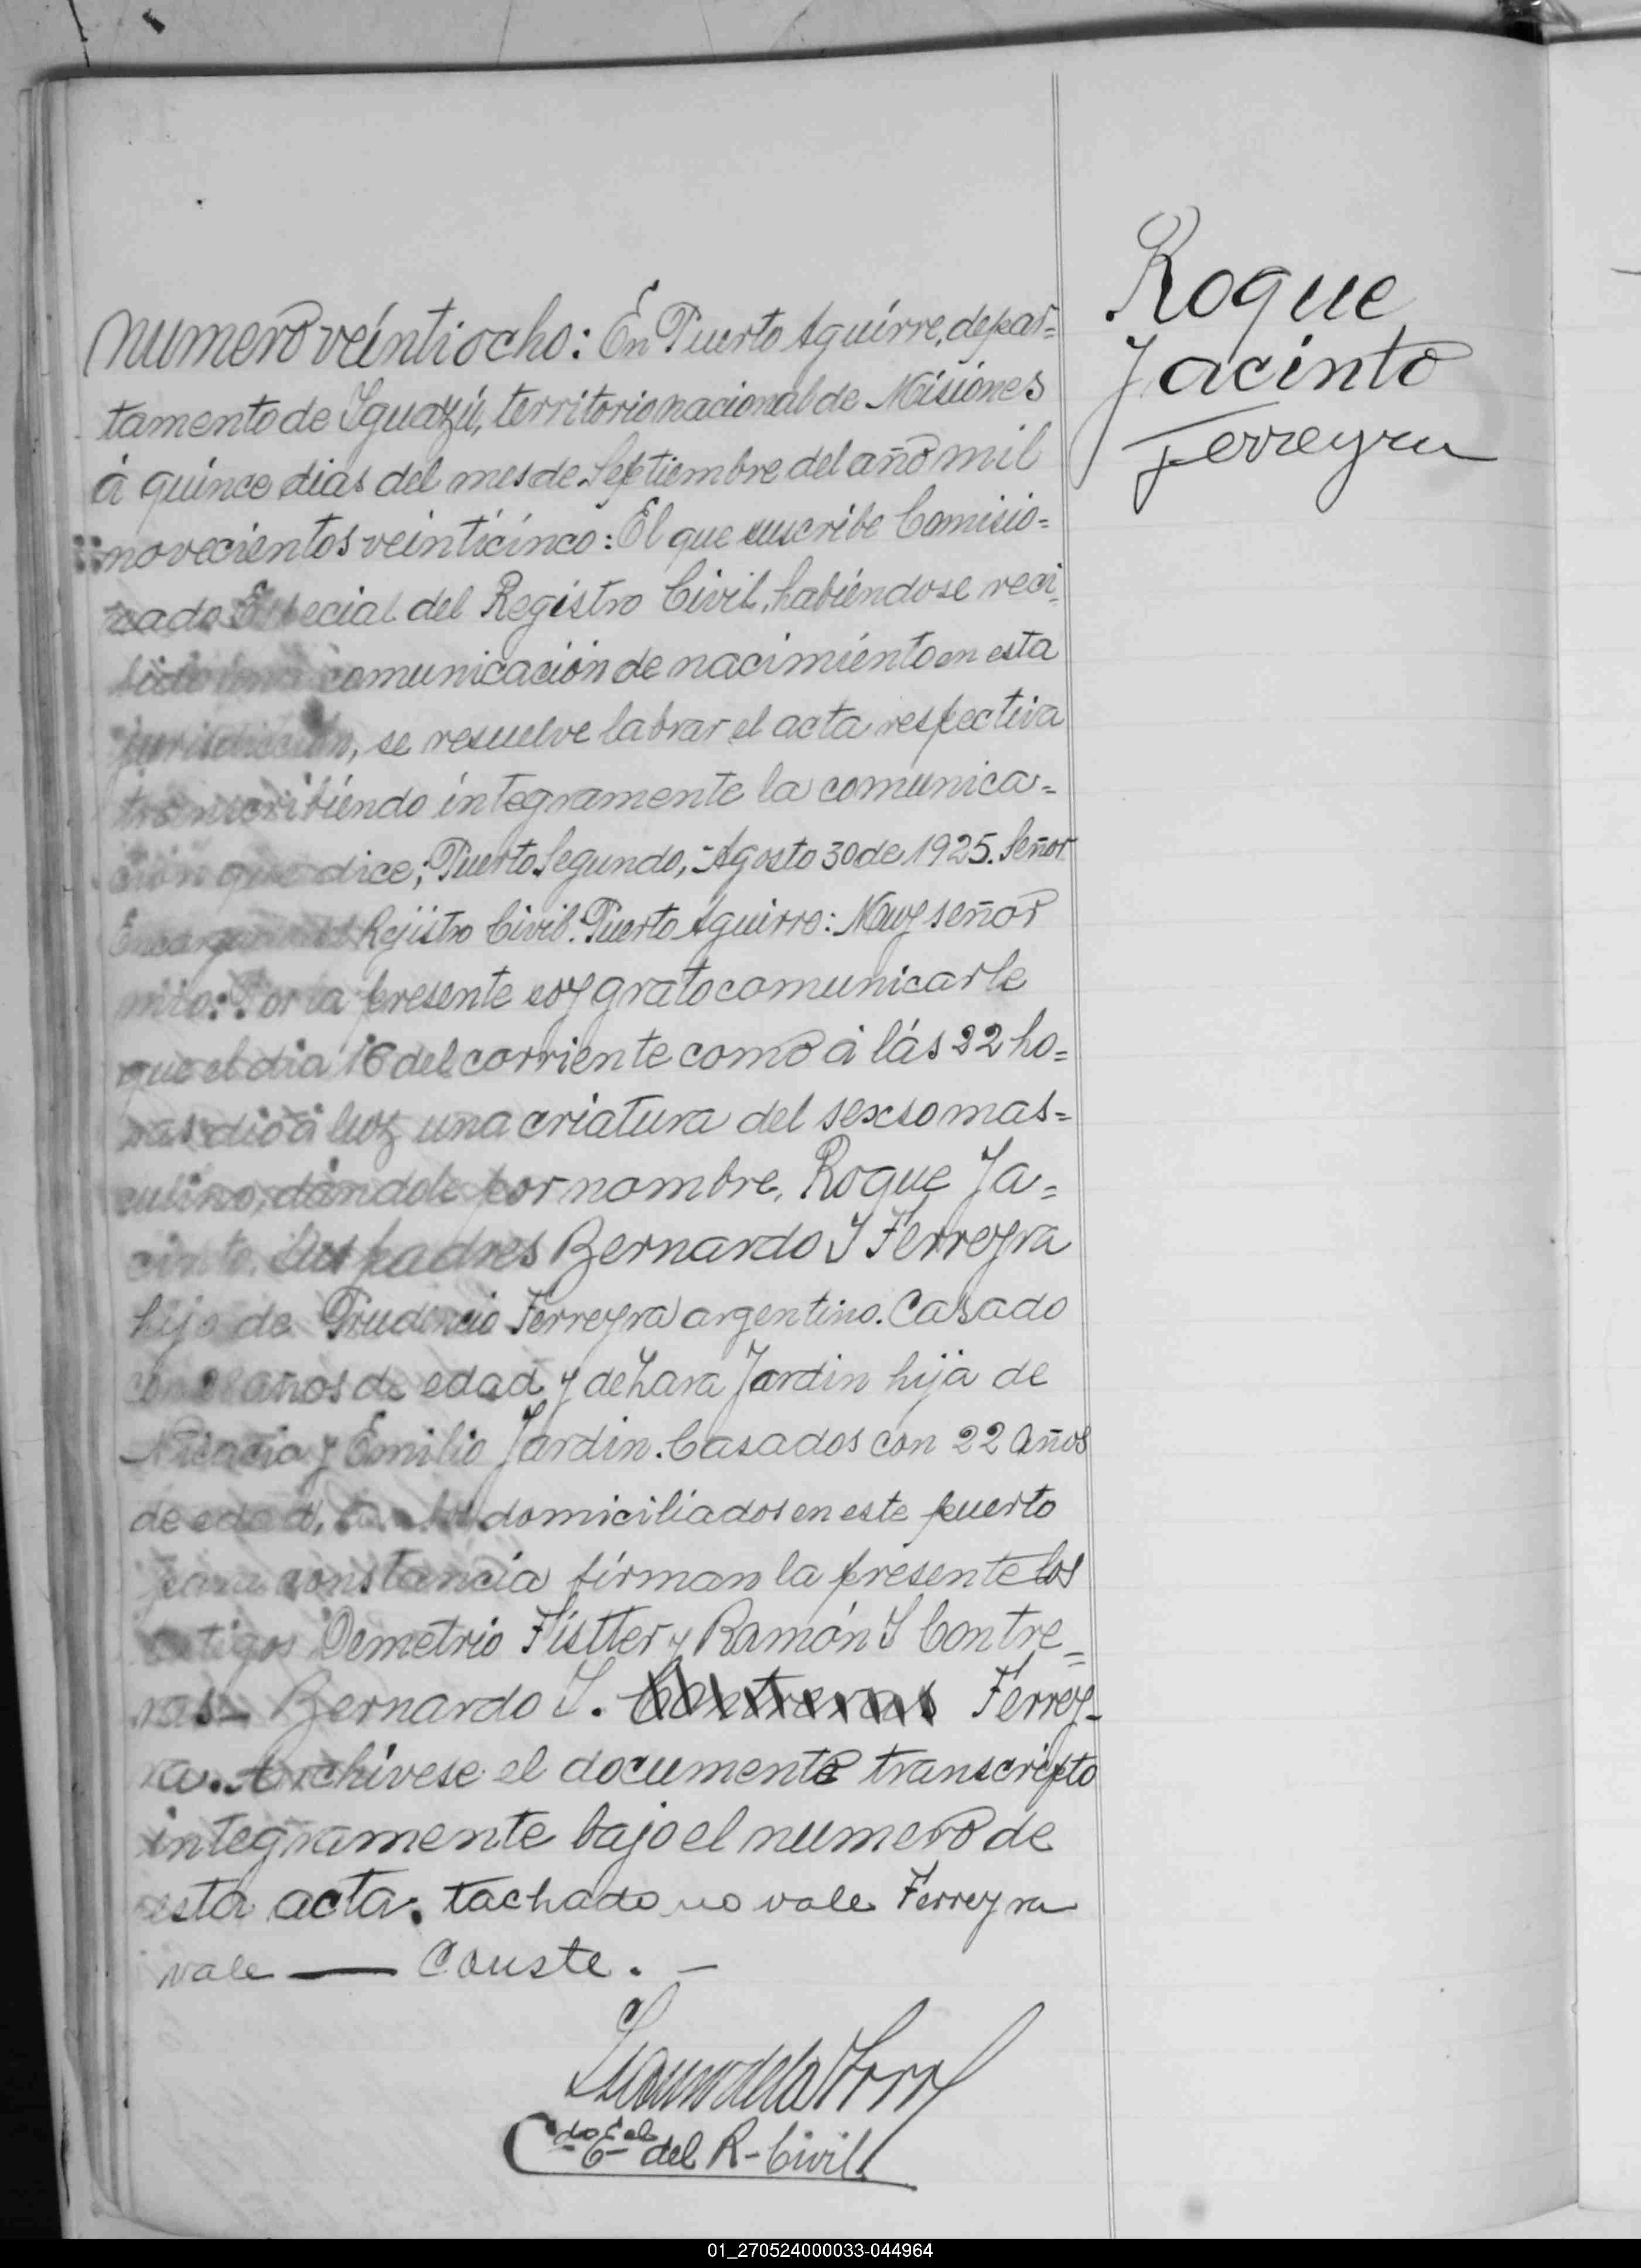 Roque
Jacinto
Ferreyra
Numero veintiocho: En Puerto Aguirre, depar=
tamento de Iguazú, territorio nacional de Misiones
á quince dias del mes de Septiembre del año mil
novecientos veinticinco: El que suscribe Comisio=
nado Especial del Registro Civil, habiéndose reci
bido una comunicación de nacimiento en esta
jurisdicción, se resuelve labrar el acta respectiva
transcribiendo integramente la comunica=
ción que dice; Puerto Segundo, Agosto 30 de 1925. Señor
Encargado del Rejistro Civil. Puerto Aguirre: Muy señor
mio: Por la presente soy grato comunicarle
que el dia 16 del corriente como á lás 22 ho=
ras dió á luz una criatura del sexso mas=
culino, dándole por nombre, Roque Ja=
cinto. Sus padres Bernardo I Ferreyra
hijo de Prudencio Ferreyra argentino. Casado
con años de edad y de Lara Jardin hija de
y Emilio Jardin. Casados con 22 años
de edad, domiciliados en este puerto
para constancia firman la presente los
testigos Demetrio Fistter y Ramón I Contre=
ras— Bernardo I. Contreras Ferrey-
ra. Archivese el documento transcripto
integramente bajo el numero de
esta acta. tachado no vale Ferreyra
vale — Conste. —
Cdo Eal del R- Civil
01_270524000033-044964